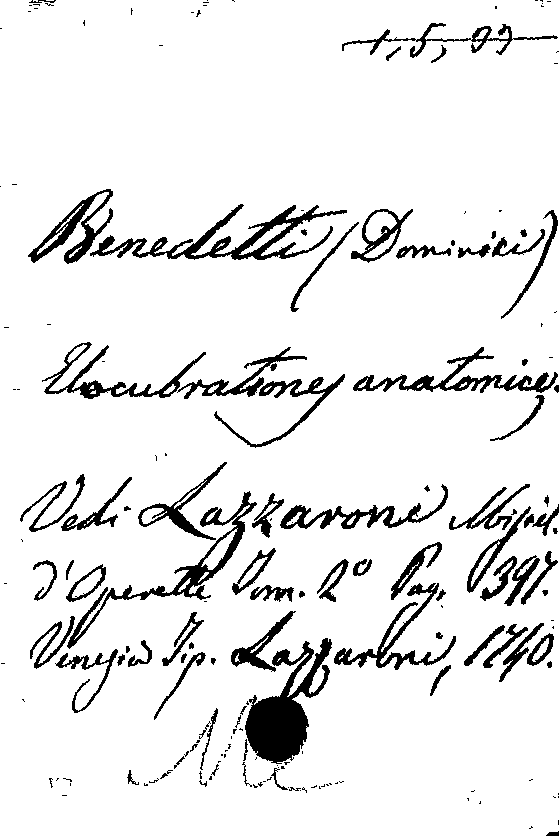 1, 5, 09
Benedetti (Dominici)
Elocubrationes anatomice.
Vedi Lazzaroni Miscel.
d'Operette Tom. 2º Pag. 397.
Venezia Tip. Lazzaroni, 1740.